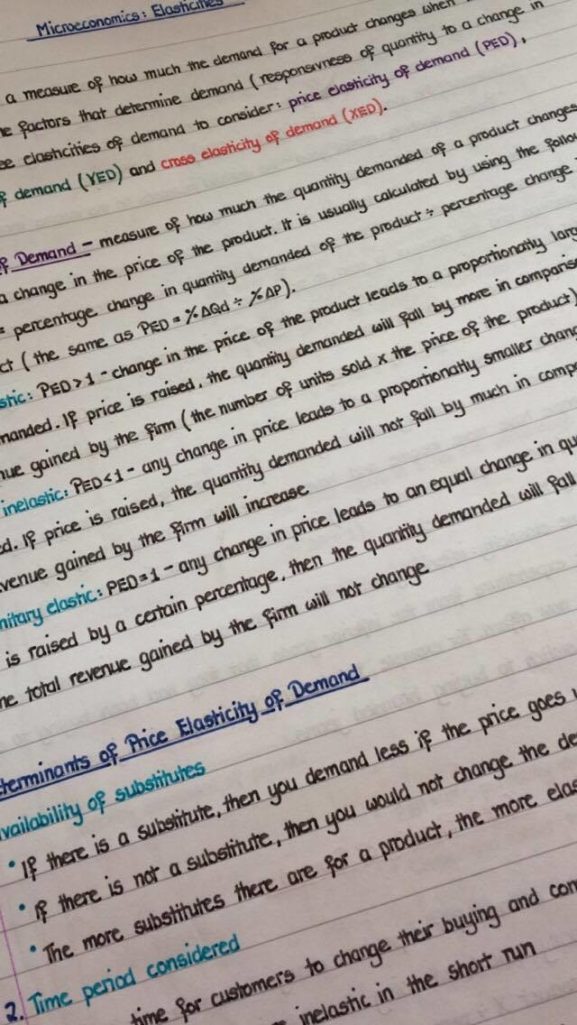 Microeconomics: Elasticities
a measure of how much the demand for a product changes when
factors that determine demand (responsivness of quantity to a change in
elasticities of demand to consider: price elasticity of demand (PED),
demand (YED) and cross elasticity of demand (XED).
of Demand - measure of how much the quantity demanded of a product changes
a change in the price of the product. It is usually calculated by using the
= percentage change in quantity demanded of the product ÷ percentage change
(the same as PED = %ΔQd ÷ %ΔP).
PED > 1 - change in the price of the product leads to a proportionatly
If price is raised, the quantity demanded will fall by more in
gained by the firm (the number of units sold x the price of the product)
inelastic: PED < 1 - any change in price leads to a proportionatly smaller
If price is raised, the quantity demanded will not fall by much in
gained by the firm will increase
elastic: PED = 1 - any change in price leads to an equal change in
is raised by a certain percentage, then the quantity demanded will fall
total revenue gained by the firm will not change
of Price Elasticity of Demand
of substitutes
• If there is a substitute, then you demand less if the price goes
• If there is not a substitute, then you would not change the
• The more substitutes there are for a product, the more
2. Time period considered
time for customers to change their buying and
inelastic in the short run